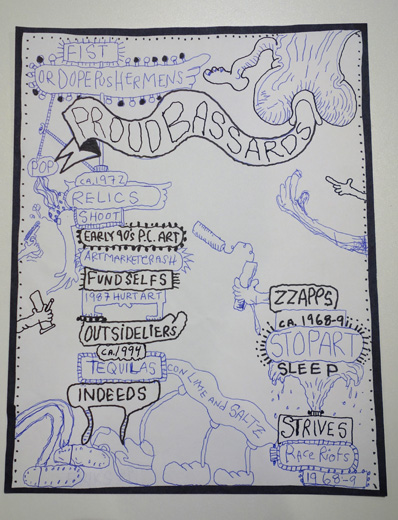 FIST
OR DOPEPUSHERMENS
PROUD BASSARDS
POP
ca. 1972
RELICS
SHOOT
EARLY 90's P.C. ART
ARTMARKETCRASH
FUNDSELFS
1987 HURT ART
OUTSIDELIERS
ca. 1994
TEQUILAS
CON LIME AND SALTZ
INDEEDS
ZZAPPS
ca. 1968-9
STOPART
SLEEP
STRIVES
RACE RIOTS
1968-9